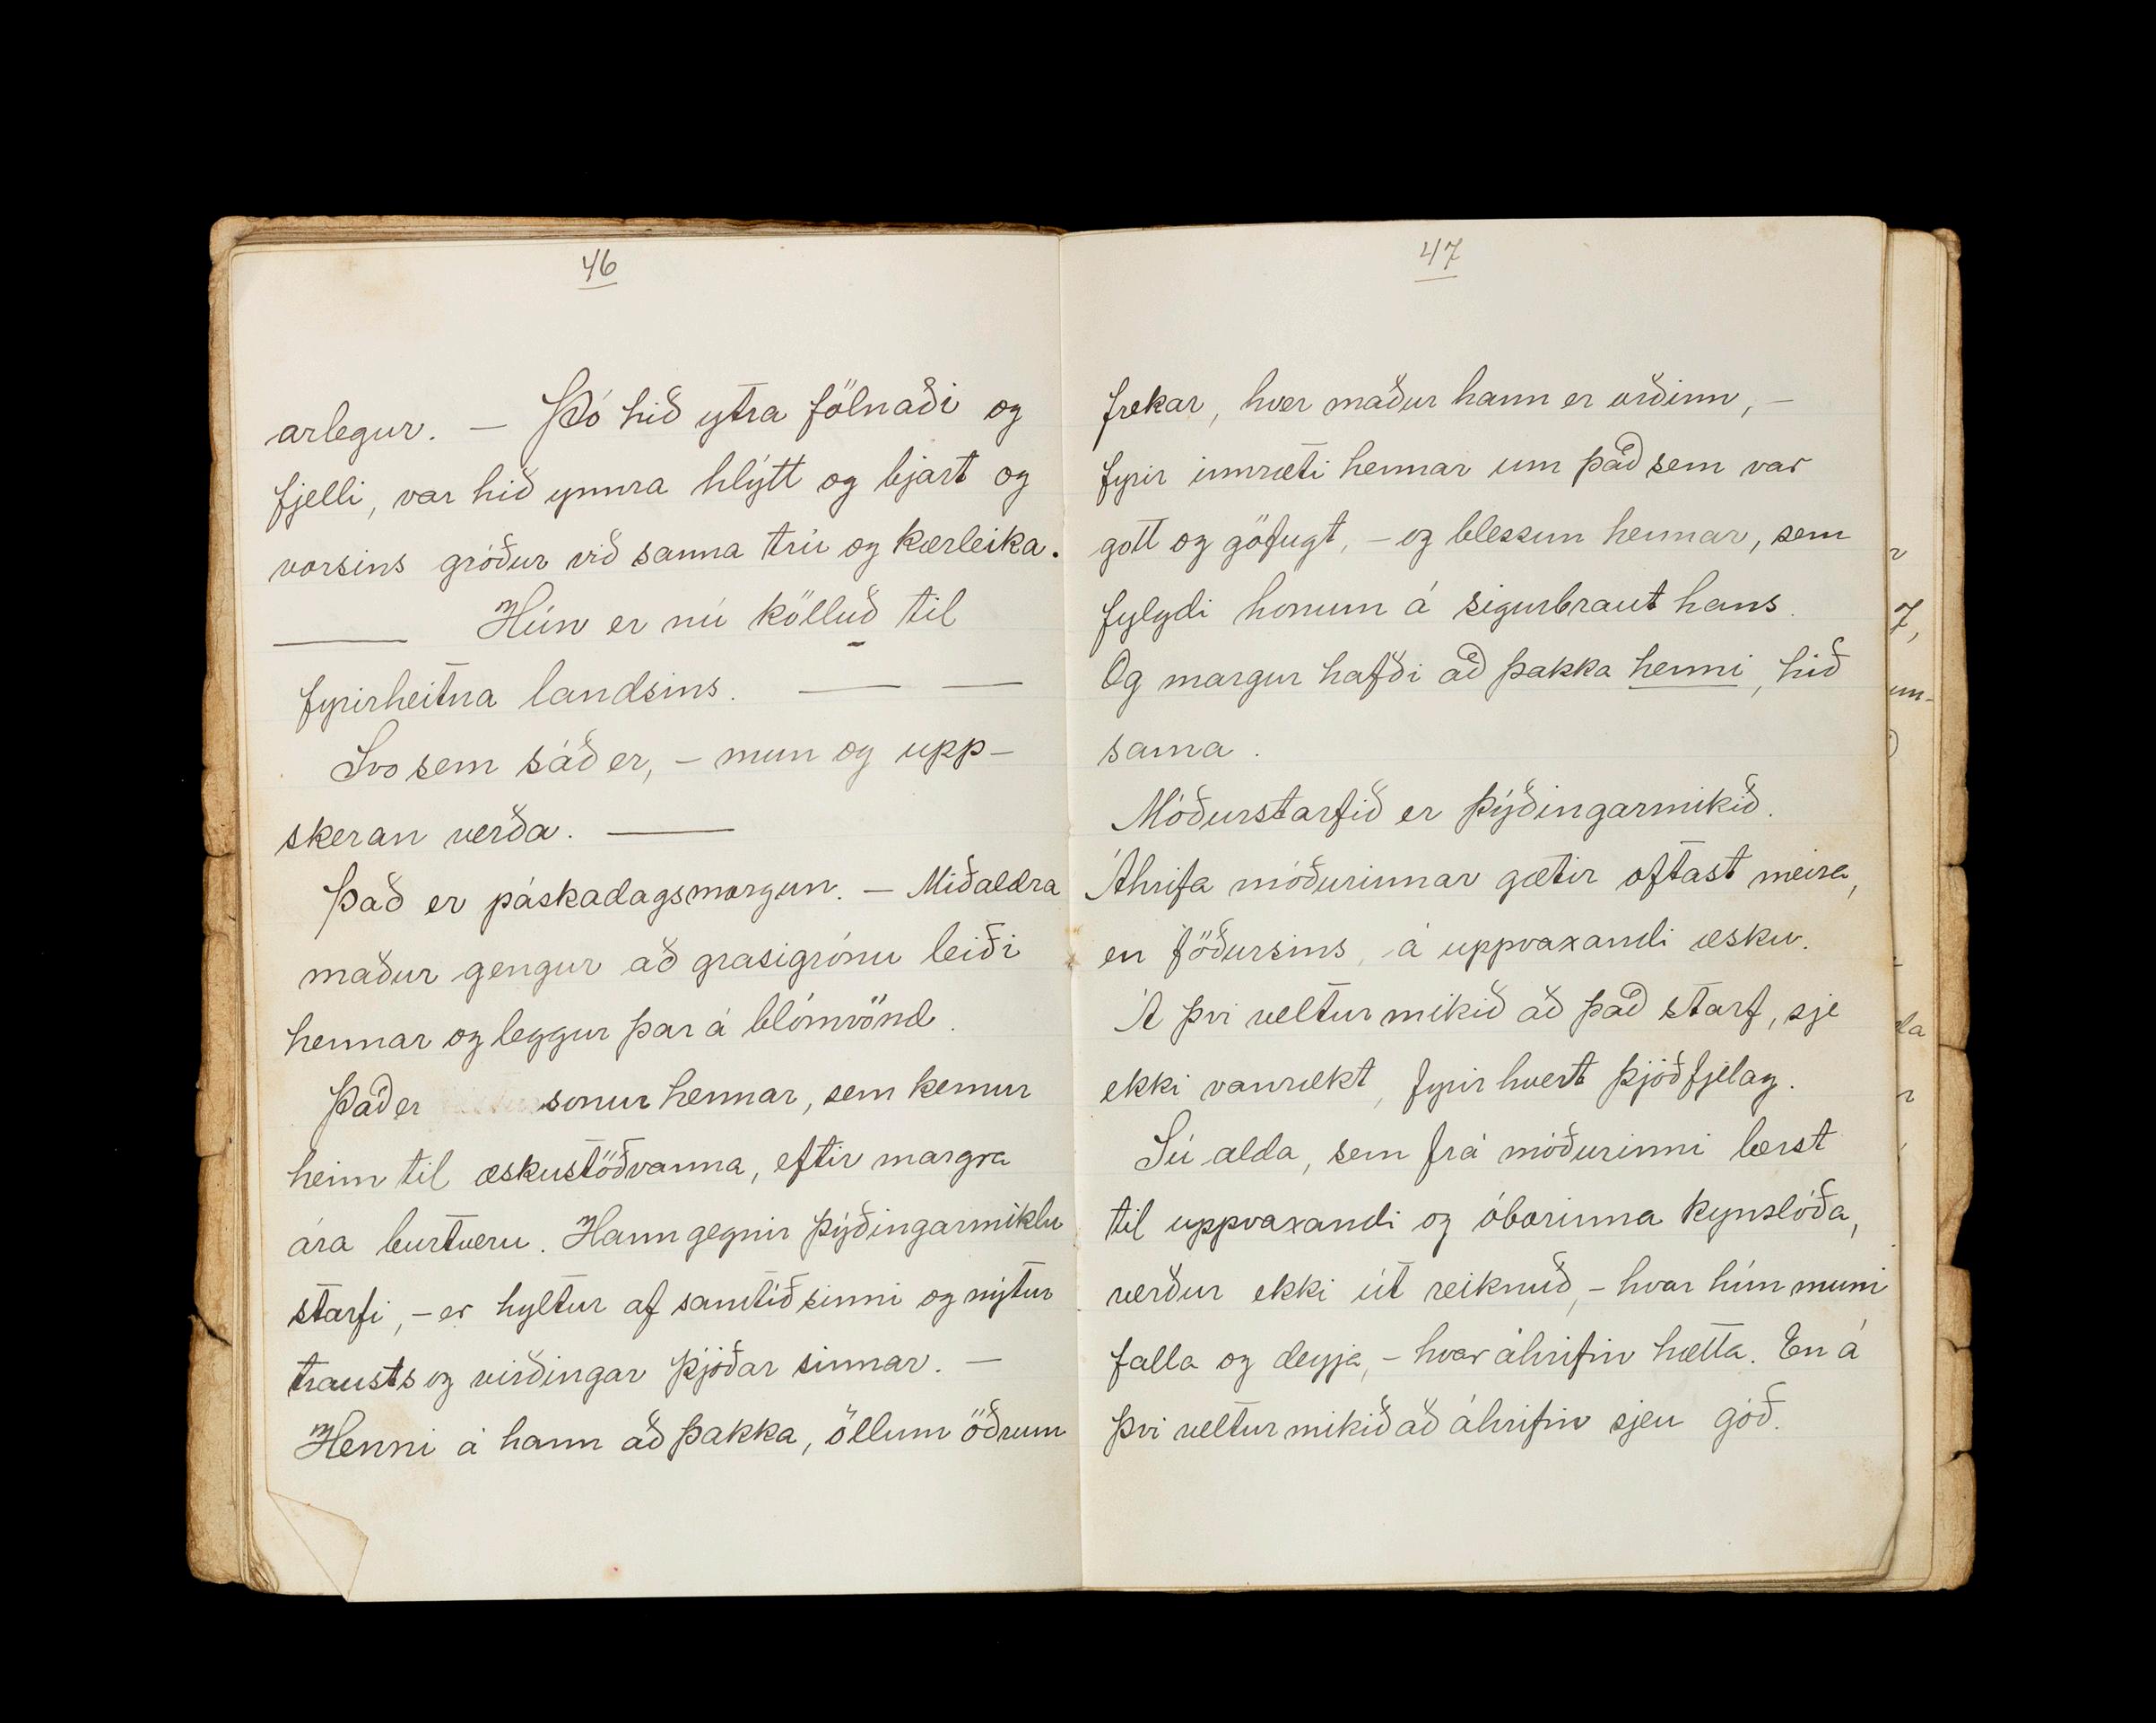 46
arlegur. — Þó hið ytra fölnaði og
fjelli, var hið ynnra hlýtt og bjart og
vorsins gróður við sanna trú og kærleika.
—— Hún er nú kölluð til
fyrirheitna landsins. — —
Svo sem sáð er, – mun og upp-
skeran verða. ——
Það er páskadagsmorgun. — Miðaldra
maður gengur að grasigrónu leiði
hennar og leggur þar á blómvönd.
Það er sonur hennar, sem kemur
heim til æskustöðvanna, eftir margra
ára burtveru. Hann gegnir þýðingarmiklu
starfi, – er hyltur af samtíð sinni og nýtur
trausts og virðingar þjóðar sinnar. —
Henni á hann að þakka, öllum öðrum
47
frekar, hver maður hann er orðinn, –
fyrir innræti hennar um það sem var
gott og göfugt, – og blessun hennar, sem
fylgdi honum á sigurbraut hans.
Og margur hafði að þakka henni, hið
sama.
Móðurstarfið er þýðingarmikið.
Áhrifa móðurinnar gætir oftast meira,
en föðursins, á uppvaxandi æsku.
Á því veltur mikið að það starf, sje
ekki vanrækt, fyrir hvert þjóðfjelag.
Sú alda, sem frá móðurinni berst
til uppvaxandi og óborinna kynslóða,
verður ekki út reiknuð, – hvar hún muni
falla og deyja, – hvar áhrifin hætta. En á
því veltur mikið að áhrifin sjeu góð.